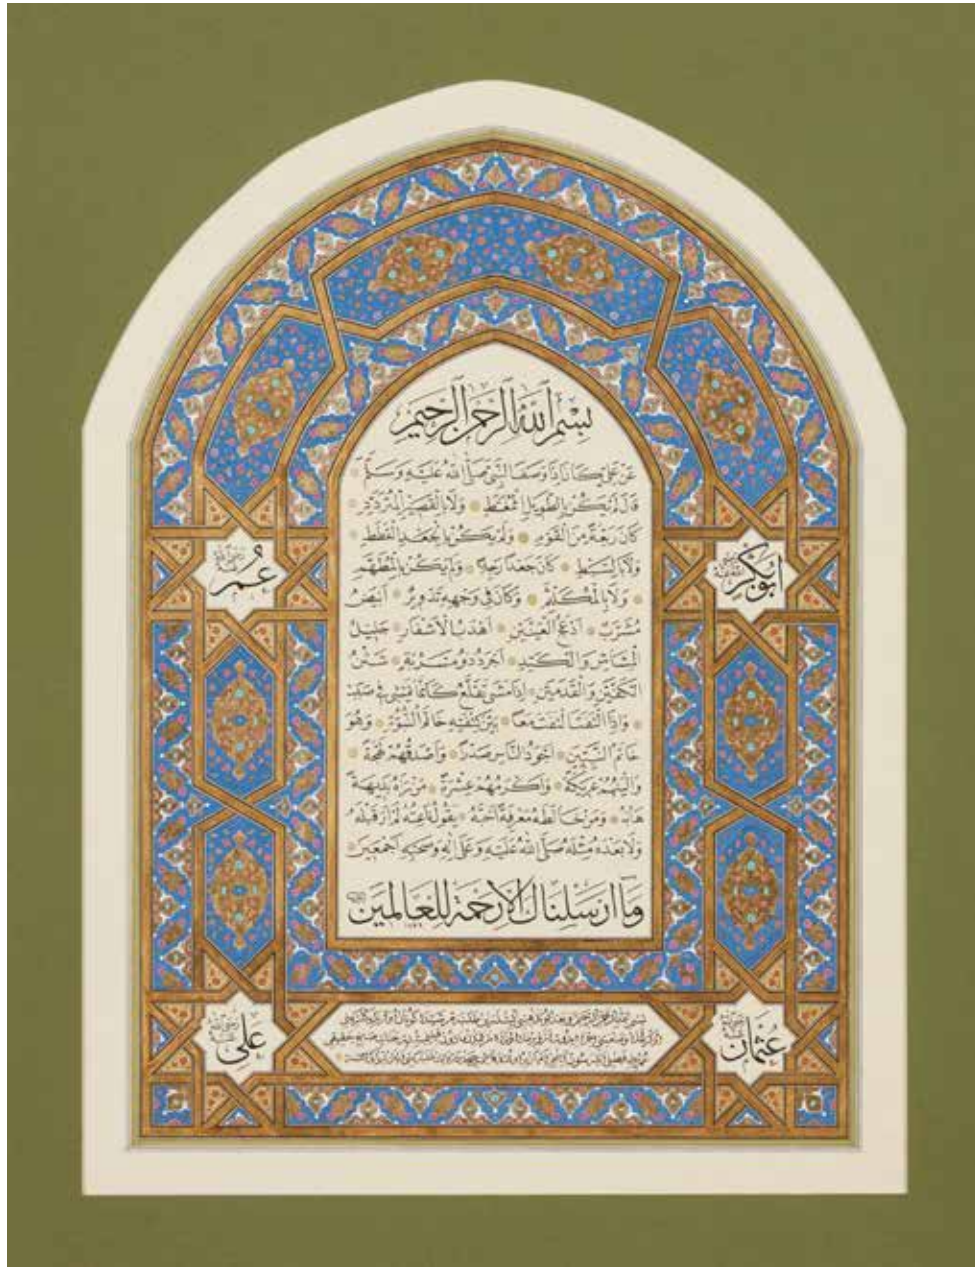 بسم الله الرحمن الرحيم
عن علي كان اذا وصف النبي صلى الله عليه وسلم
قال لم يكن بالطويل الممغط ولا بالقصير المتردد
كان ربعة من القوم ولم يكن بالجعد القطط
ولا بالسبط كان جعدا رجلا ولم يكن بالمطهم
ولا بالمكلثم وكان في وجهه تدوير ابيض
مشرب ادعج العينين اهدب الاشفار جليل
المشاش والكتد اجرد ذو مسربة شثن
الكفين والقدمين اذا مشى تقلع كانما يمشي في صبب
واذا التفت التفت معا بين كتفيه خاتم النبوة وهو
خاتم النبيين اجود الناس صدرا واصدقهم لهجة
والينهم عريكة واكرمهم عشرة من رآه بديهة
هابه ومن خالطه معرفة احبه يقول ناعته لم ار قبله
ولا بعده مثله صلى الله عليه وعلى اله وصحبه اجمعين
وما ارسلناك الا رحمة للعالمين
ابوبكر رضي الله عنه
عمر رضي الله عنه
عثمان رضي الله عنه
علي رضي الله عنه